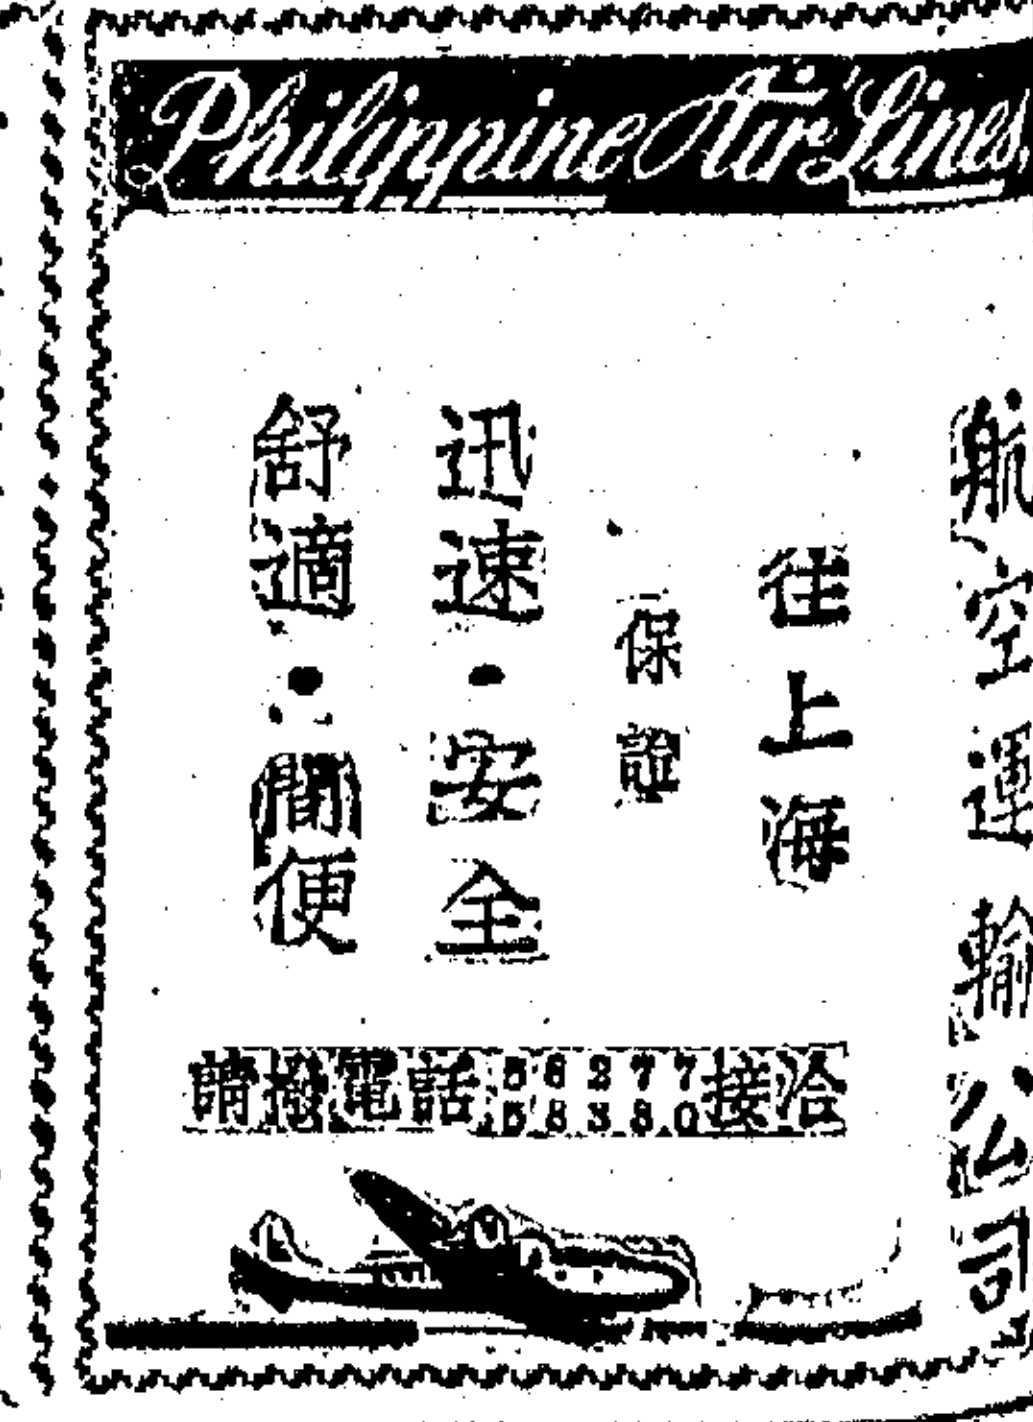 Philippine Air Lines
航空運輸公司
往上海
保證
迅速・安全
舒適・簡便
請撥電話58277 58380接洽